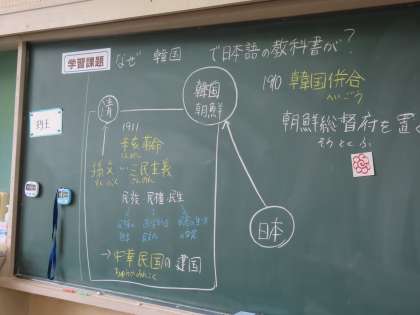 学習課題
なぜ 韓国 で日本語の教科書が?
清
韓国
朝鮮
1910 韓国併合
へいごう
朝鮮総督府を置く
そうとくふ
1911
辛亥革命
しんがい
孫文 三民主義
そんぶん さんみん
民族 民権 民生
→中華民国の建国
ちゅうかみんこく
日本